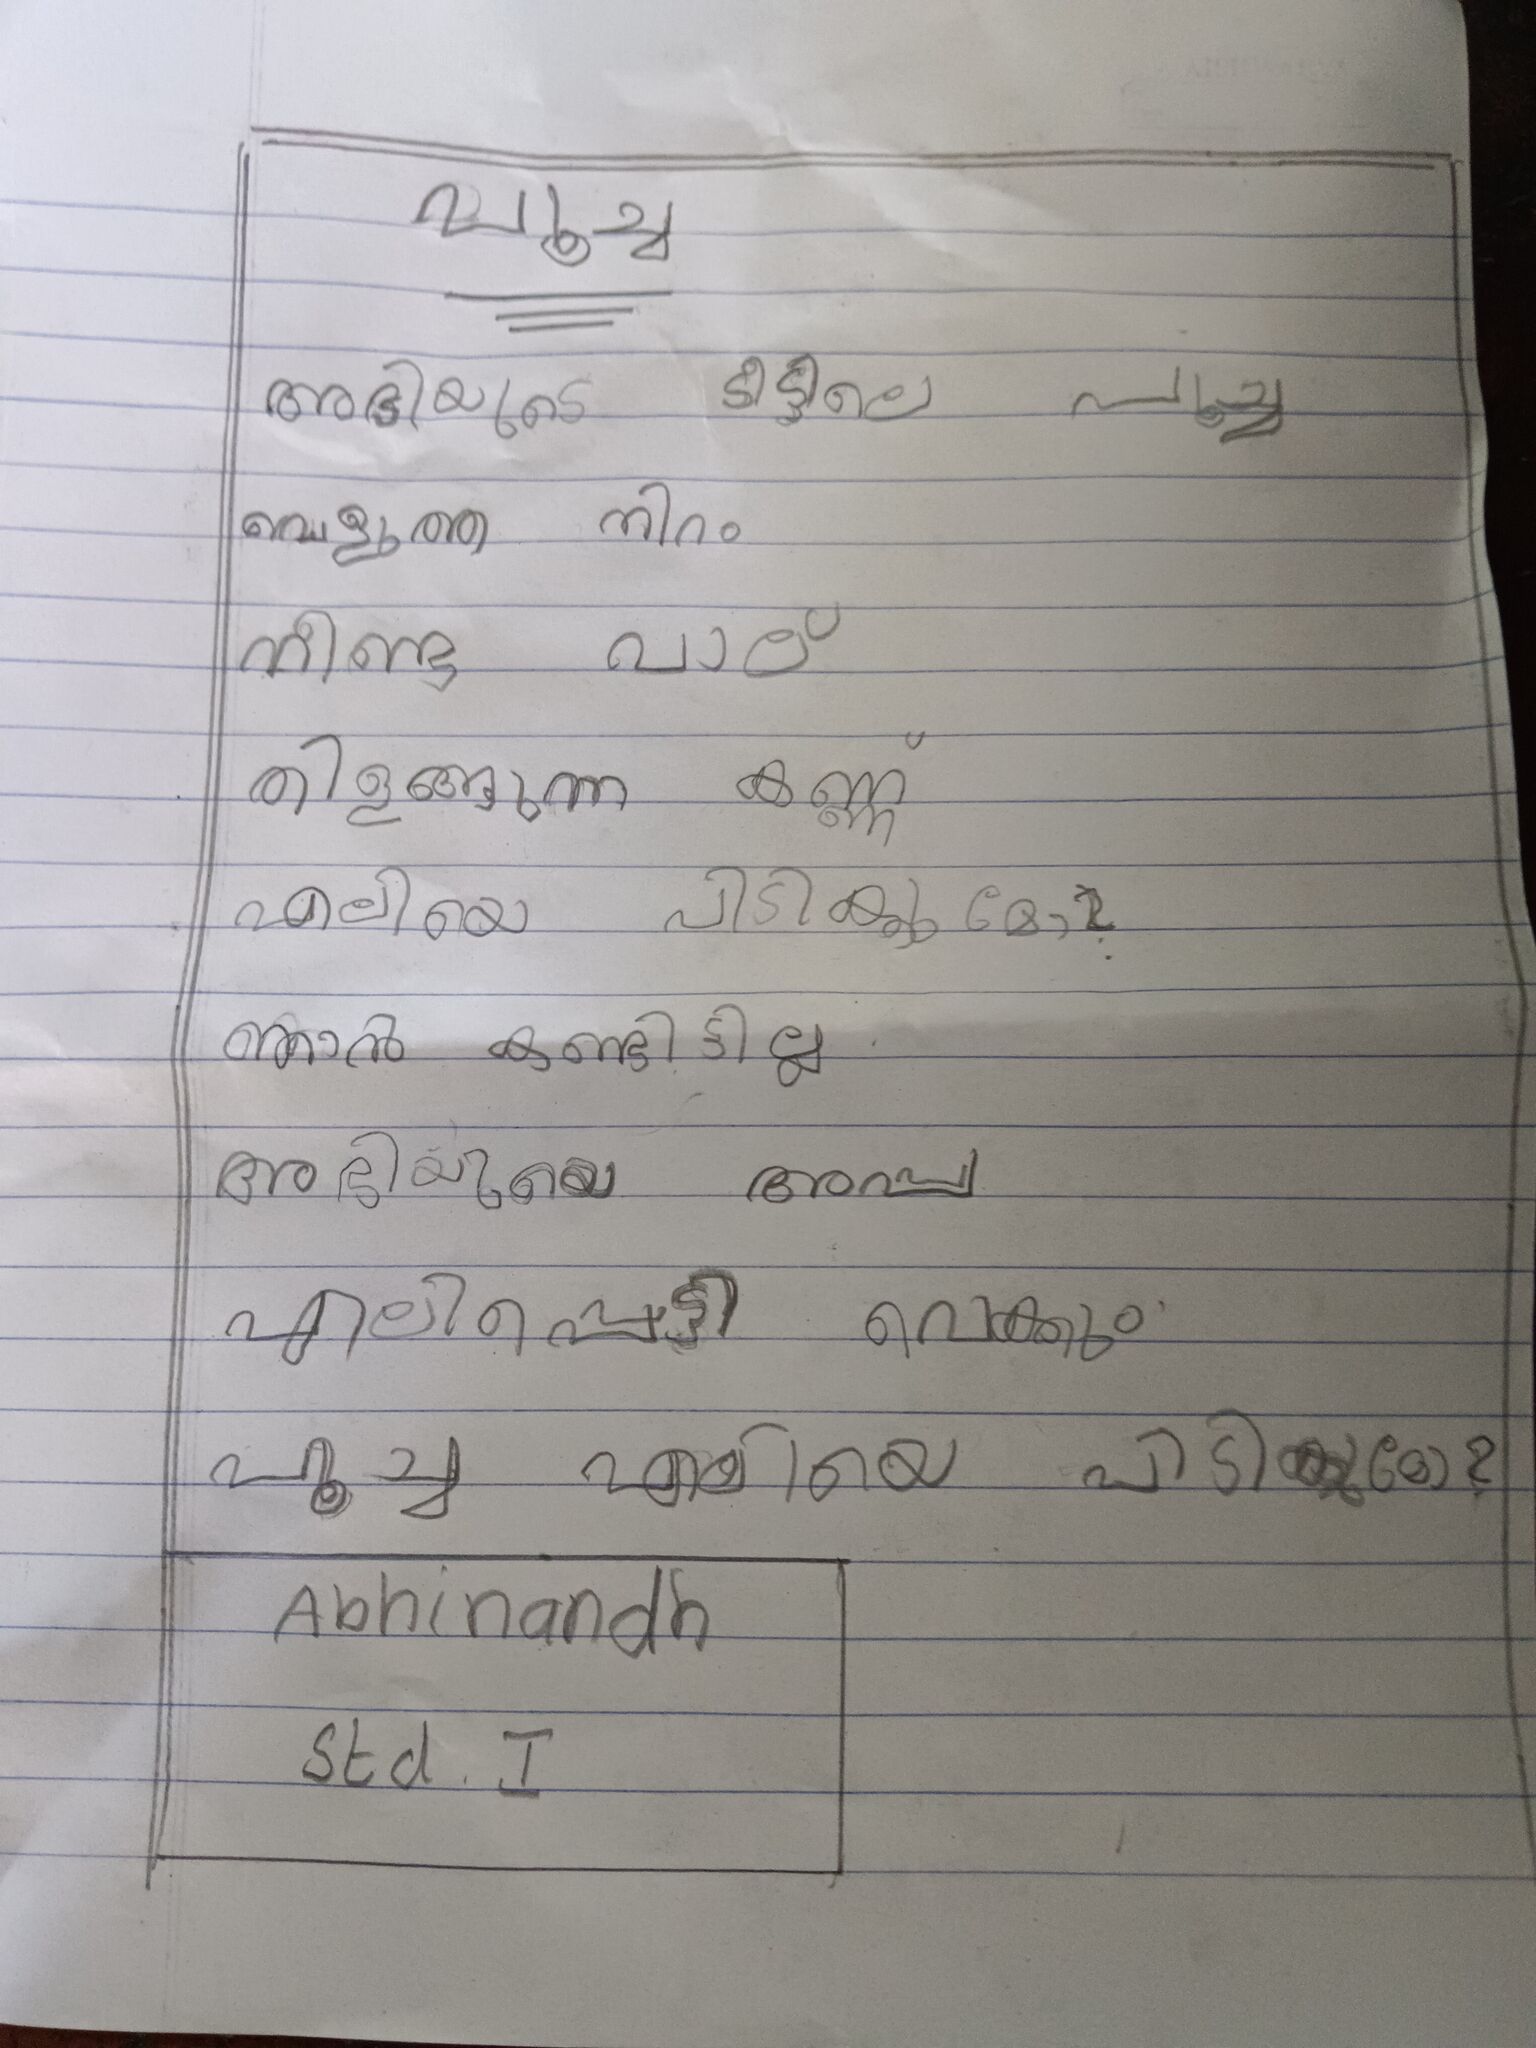 പൂച്ച
അഭിയുടെ വീട്ടിലെ പൂച്ച
വെളുത്ത നിറം
നീണ്ട വാല്
തിളങ്ങുന്ന കണ്ണ്
എലിയെ പിടിക്കുമോ?
ഞാൻ കണ്ടിട്ടില്ല
അഭിയുയെ അമ്പ
എലിപ്പെട്ടി വെക്കും
പൂച്ച എലിയെ പിടിക്കുമോ?
Abhinandh
Std. I